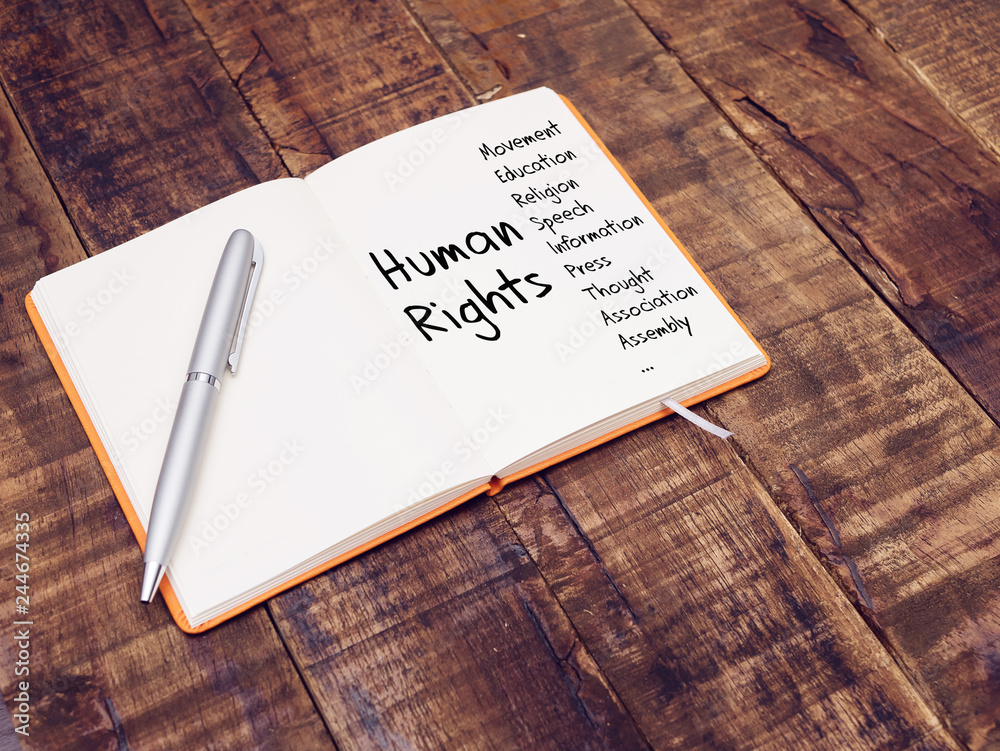 Human
Rights
Movement
Education
Religion
Speech
Information
Press
Thought
Association
Assembly
...
Adobe Stock
Adobe Stock | #244674335